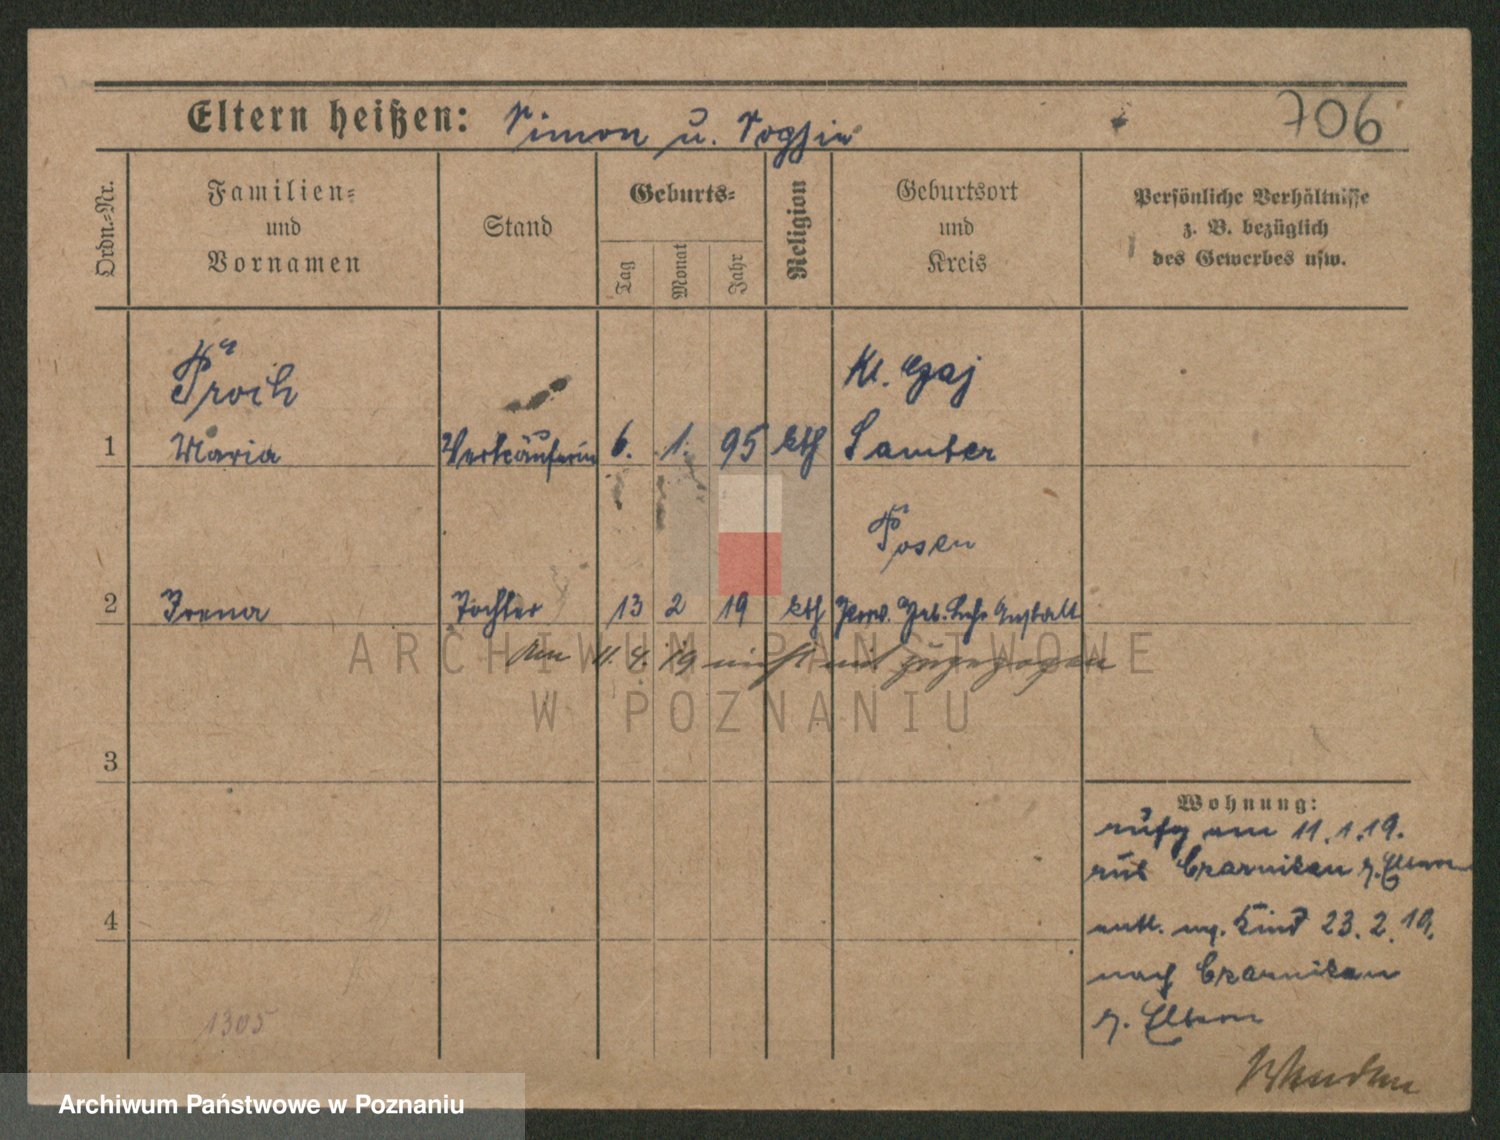 Eltern heißen: Simon u. Sophie
706
Ordn.-Nr.
Familien-
und
Vornamen
Stand
Geburts-
Tag
Monat
Jahr
Religion
Geburtsort
und
Kreis
Persönliche Verhältnisse
z. B. bezüglich
des Gewerbes usw.
Kl. Gaj
1 Maria Verkäuferin 6. 1. 95 kth Samter
Posen
2 Irena Tochter 13 2 19 kth Prov. Heb. Lehr Anstalt
Am 11. 4. 19 nicht mit zugezogen
ARCHIWUM PAŃSTWOWE
W POZNANIU
3
Wohnung:
am 11.1.19.
aus Czarnikau z. Eltern
4
entl. m. Kind 23.2.19.
nach Czarnikau
z. Eltern
1305
Wenden
Archiwum Państwowe w Poznaniu